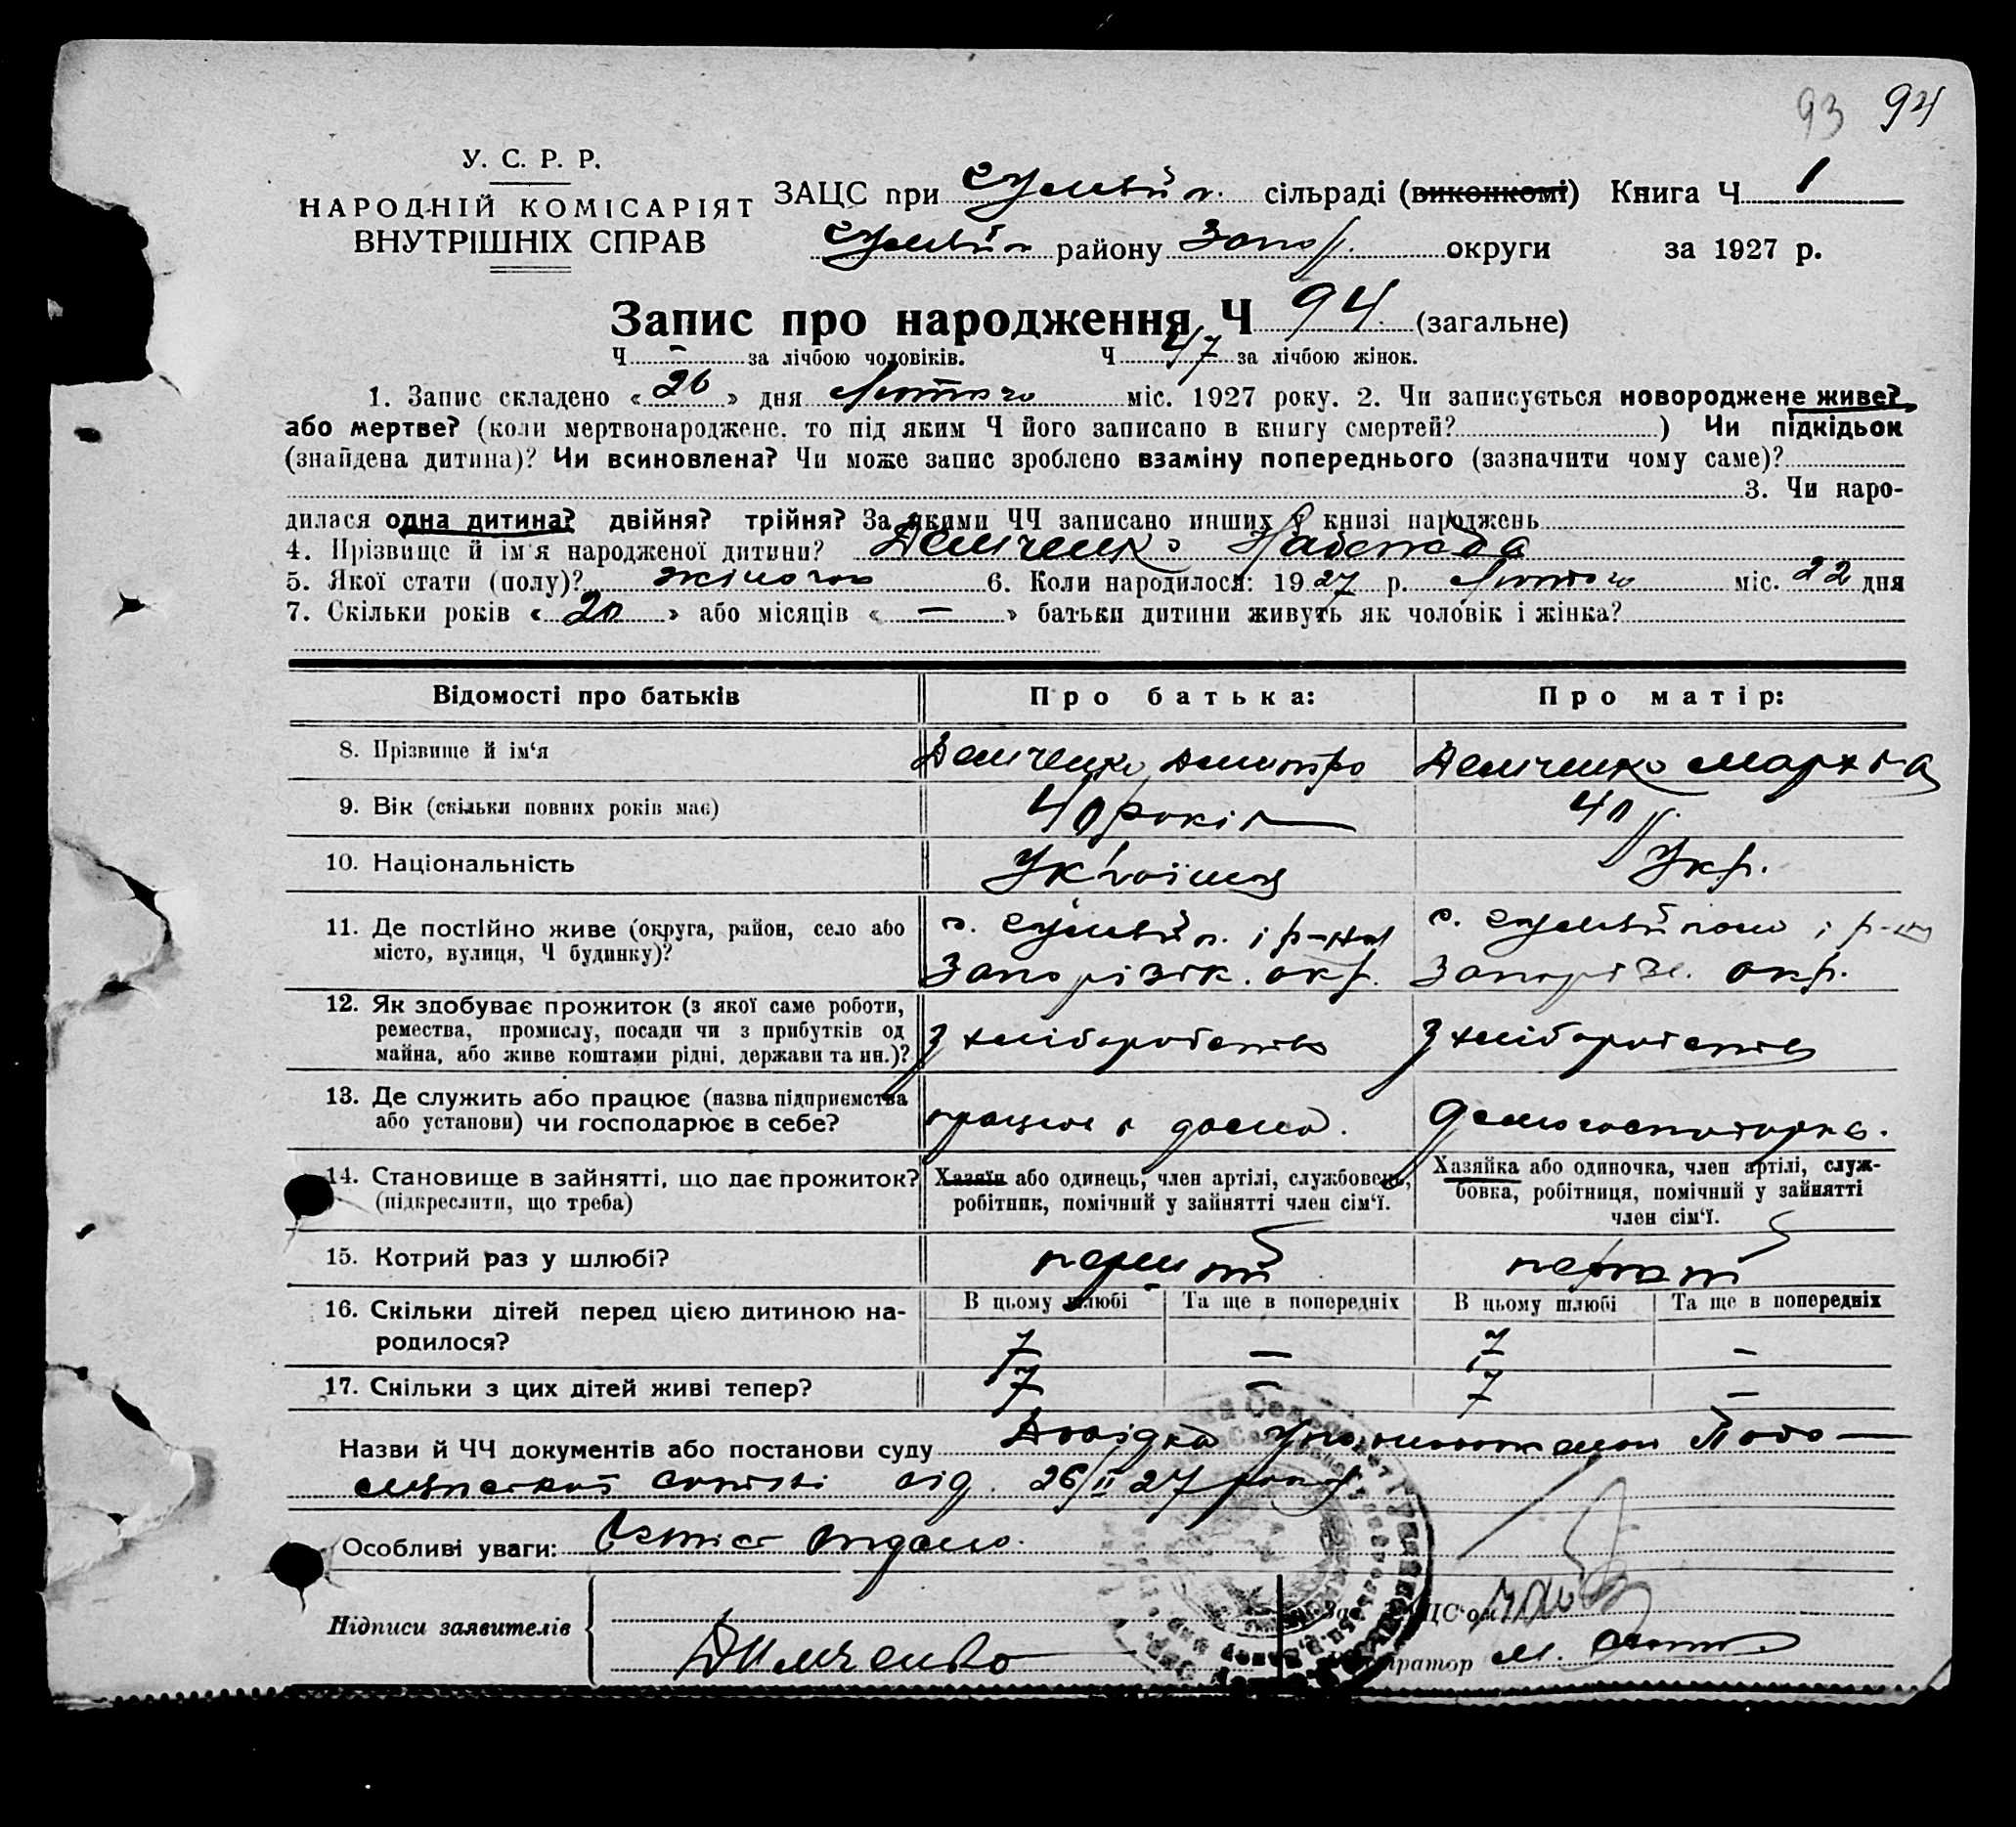 93 94
У. С. Р. Р.
НАРОДНІЙ КОМІСАРІЯТ
ВНУТРІШНІХ СПРАВ
ЗАЦС при Гуляйп. сільраді (виконкомі) Книга Ч 1
Гуляйп району Запор. округи за 1927 р.
Запис про народження Ч 94 (загальне)
Ч - за лічбою чоловіків. Ч 47 за лічбою жінок.
1. Запис складено « 26 » дня Лютого міс. 1927 року. 2. Чи записується новороджене живе?
або мертве? (коли мертвонароджене, то під яким Ч його записано в книгу смертей? ) Чи підкідьок
(знайдена дитина)? Чи всиновлена? Чи може запис зроблено взаміну попереднього (зазначити чому саме)?
3. Чи наро-
дилася одна дитина? двійня? трійня? За якими ЧЧ записано инших у книзі народжень
4. Прізвище й ім'я народженої дитини? Демченко Надежда
5. Якої стати (полу)? жіночого 6. Коли народилося: 1927 р. Лютого міс. 22 дня
7. Скільки років « 20 » або місяців « — » батьки дитини живуть як чоловік і жінка?
Відомості про батьків Про батька: Про матір:
8. Прізвище й ім'я Демченко Дмитро Демченко
9. Вік (скільки повних років має) 40 років 40 р.
10. Національність Українець Укр.
11. Де постійно живе (округа, район, село або
місто, вулиця, Ч будинку)?
с. Гуляйп. і р-на с. Гуляйполе і р-на
Запоріжк. окр. Запоріж. окр.
12. Як здобуває прожиток (з якої саме роботи,
ремества, промислу, посади чи з прибутків од
майна, або живе коштами рідні, держави та ин.)?
З хліборобства З хліборобства
13. Де служить або працює (назва підприємства
або установи) чи господарює в себе?
працює в дома. домогосподарка.
14. Становище в зайнятті, що дає прожиток?
(підкреслити, що треба)
Хазяїн або одинець, член артілі, службовець,
робітник, помічний у зайнятті член сім'ї.
Хазяйка або одиночка, член артілі, служ-
бовка, робітниця, помічний у зайнятті
член сім'ї.
15. Котрий раз у шлюбі? перший перший
16. Скільки дітей перед цією дитиною на-
родилося?
В цьому шлюбі Та ще в попередніх В цьому шлюбі Та ще в попередніх
7 — 7 —
17. Скільки з цих дітей живі тепер? 7 — 7 —
Назви й ЧЧ документів або постанови суду Довідка Уповноваженого
сотні від 26/II 27 року
Особливі уваги: видано.
Підписи заявителів
Димченко